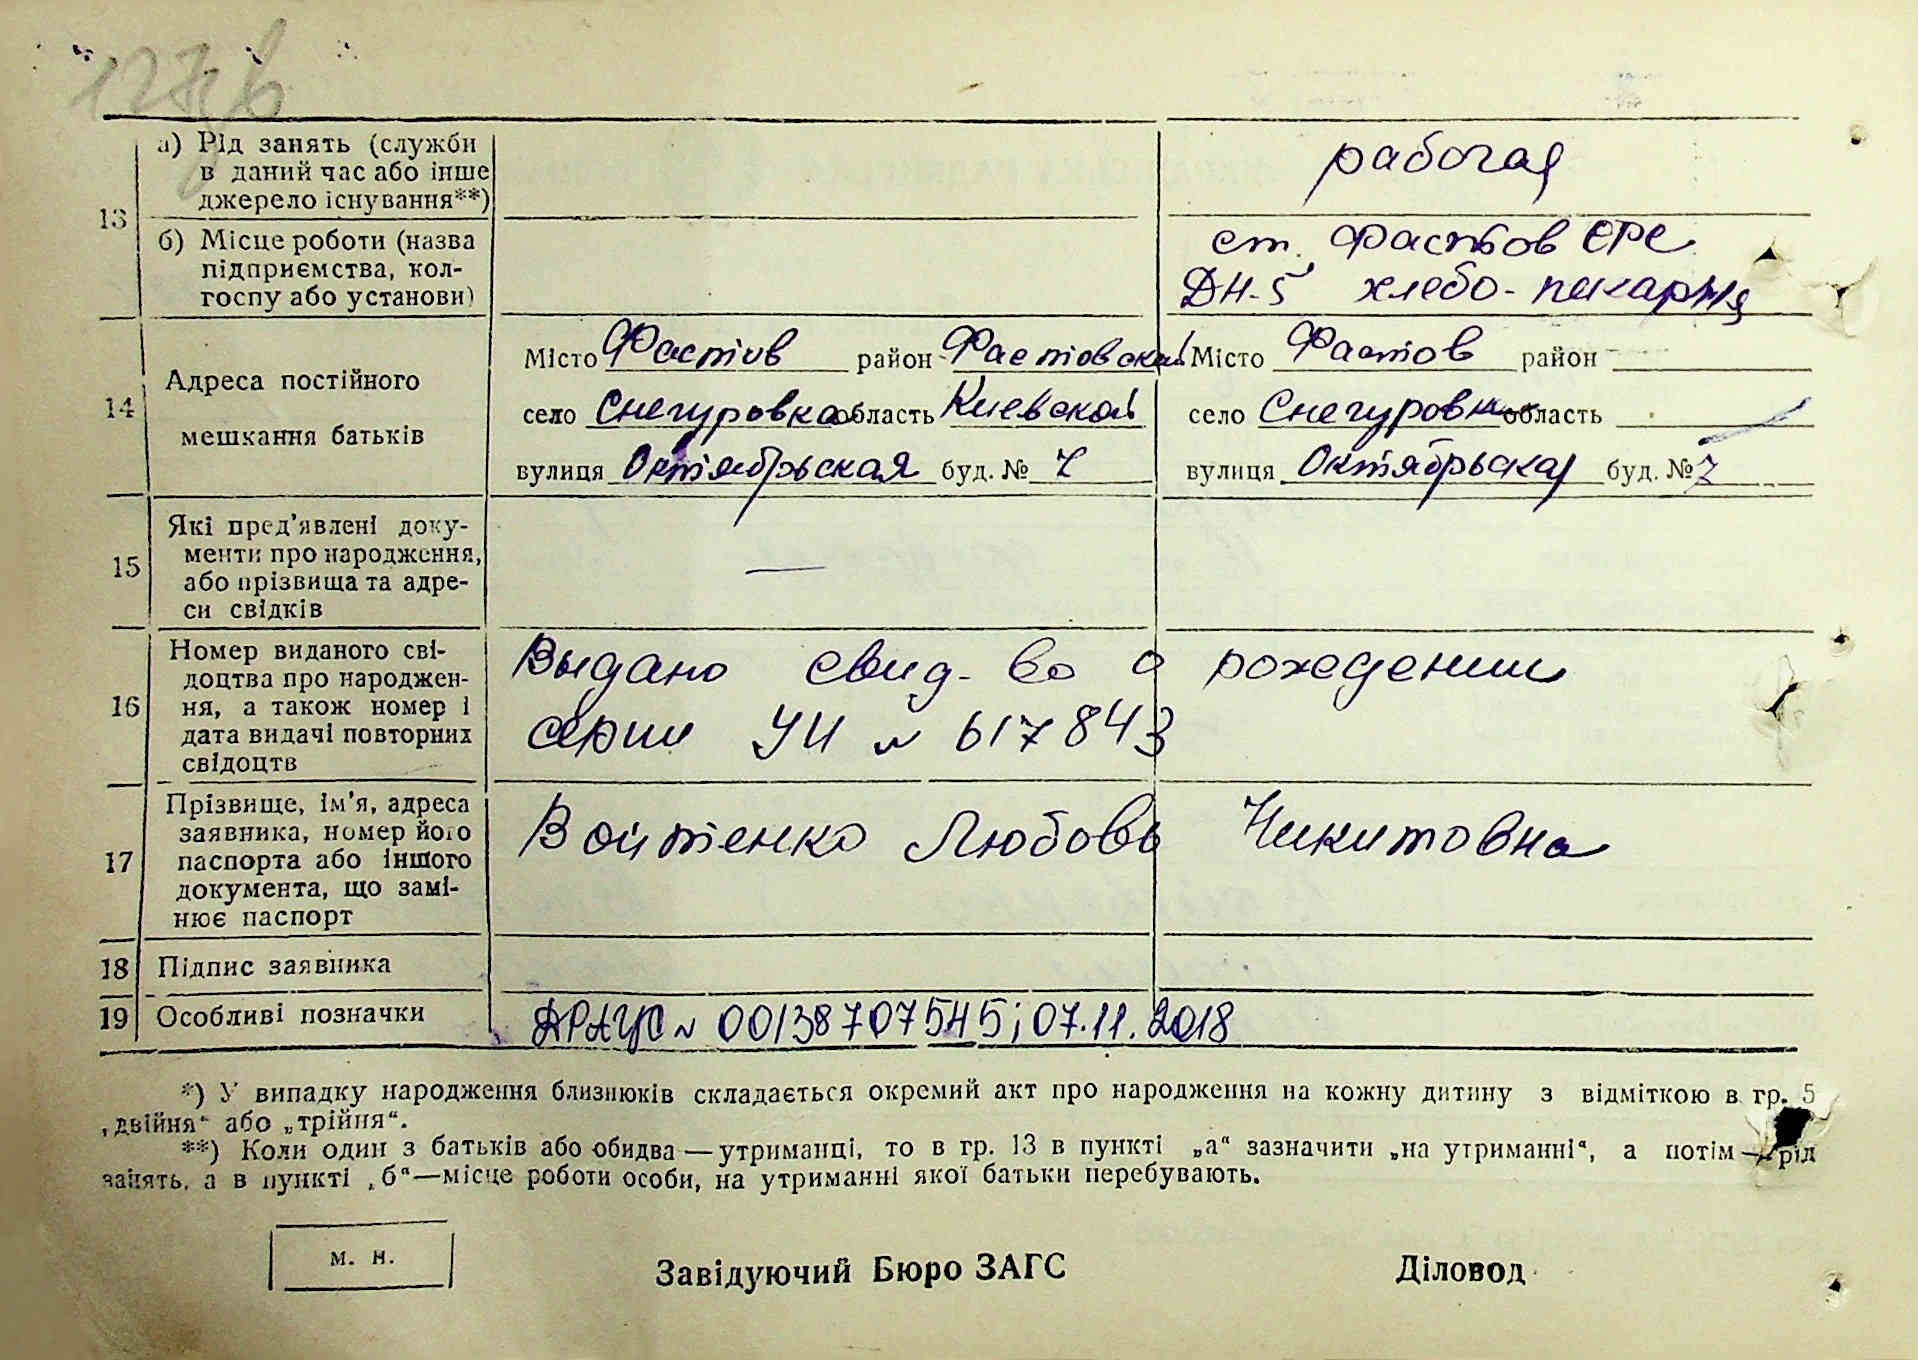 13
а) Рід занять (служби
в даний час або інше
джерело існування**)
рабочая
б) Місце роботи (назва
підприємства, кол-
госпу або установи)
ст. Фастов ОРС
ДН-5 хлебо-пекарня
14
Адреса постійного
мешкання батьків
Місто Фастов район Фастовский
село Снегуровка область Киевской
вулиця Октябрьская буд. № 7
Місто Фастов район
село Снегуровка область
вулиця Октябрьская буд. № 7
15
Які пред’явлені доку-
менти про народження,
або прізвища та адре-
си свідків
—
16
Номер виданого сві-
доцтва про народжен-
ня, а також номер і
дата видачі повторних
свідоцтв
Выдано свид-во о рождении
серии УИ № 617843
17
Прізвище, ім’я, адреса
заявника, номер його
паспорта або іншого
документа, що замі-
нює паспорт
Войтенко Любовь Никитовна
18 Підпис заявника
19 Особливі позначки
ДРАЦС № 00138707545; 07.11.2018
*) У випадку народження близнюків складається окремий акт про народження на кожну дитину з відміткою в гр. 5
„двійня“ або „трійня“.
**) Коли один з батьків або обидва — утриманці, то в гр. 13 в пункті „а“ зазначити „на утриманні“, а потім — рід
занять, а в пункті „б“ — місце роботи особи, на утриманні якої батьки перебувають.
м. н.
Завідуючий Бюро ЗАГС
Діловод